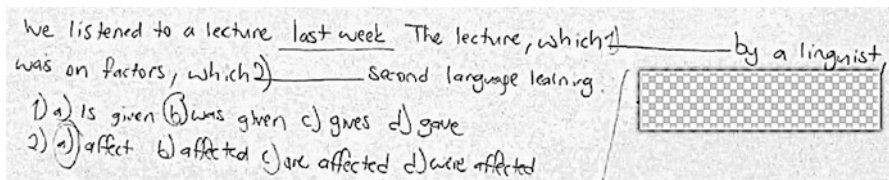 We listened to a lecture last week The lecture, which 1) ________ by a linguist,
was on factors, which 2) ________ second language learning.
1) a) Is given b) was given c) gives d) gave
2) a) affect b) affected c) are affected d) were affected